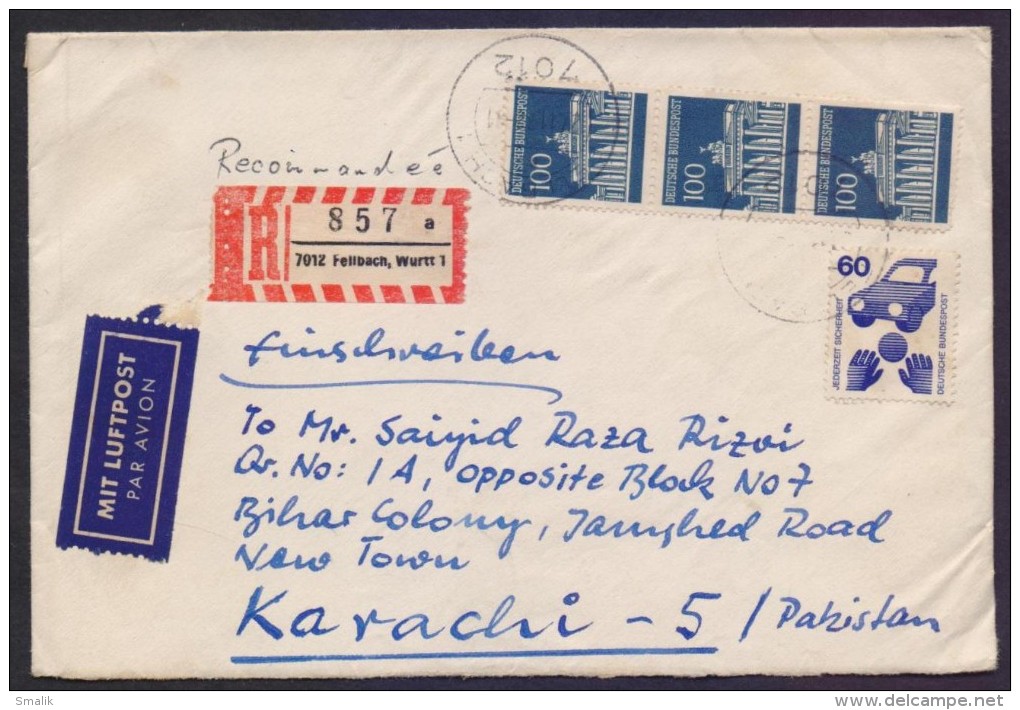 7012
DEUTSCHE BUNDESPOST
100
DEUTSCHE BUNDESPOST
100
DEUTSCHE BUNDESPOST
100
Recommandée
R
857 a
7012 Fellbach, Württ 1
60
JEDERZEIT SICHERHEIT
DEUTSCHE BUNDESPOST
MIT LUFTPOST
PAR AVION
Einschreiben
To Mr. Saiyid Raza Rizvi
Qr. No: 1A, opposite Block No 7
Bihar Colony, Jamshed Road
New Town
Karachi - 5 / Pakistan
Smalik
www.delcampe.net